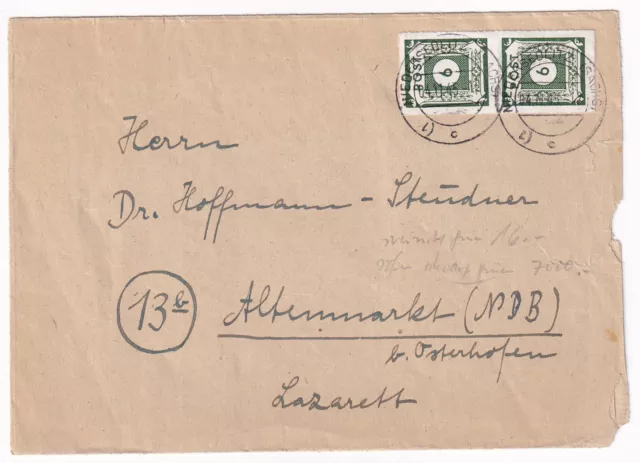 POST
6
POST
6
Herrn
Dr. Hoffmann-Steudner
16.-
7000.-
13b Altenmarkt (NDB)
b. Osterhofen
Lazarett